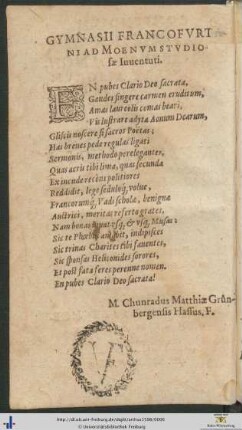 GYMNASII FRANCOFVRT
NI AD MOENVM STVDIO-
sæ Iuuentuti.
EN pubes Clario Deo sacrata,
Gaudes pingere carmen eruditum,
Amas laureolis comas beari,
Vis lustrare adyta Aonum Dearum,
Gliscis noscere si sacros Poëtas;
Has breues pede regulas ligati
Sermonis, methodo perelegantes,
Quas acris tibi lima, quas secunda
Ex incude recens politiores
Reddidit, lege sedulusq́, volue,
Francorumq́; Vadi scholæ, benignæ
Austrici, meritas referto grates.
Nam bonas iuuat vsq́, & vsq́, Musas:
Sic te Phœbus amabit,
Sic trimas Charites tibi fauentes,
Sic sponsas Heliconides sorores,
Et post fata feres perenne nomen.
En pubes Clario Deo sacrata!
M. Chunradus Matthiæ Grün-
bergensis Hassus, F.
http://dl.ub.uni-freiburg.de/diglit/
© Universitätsbibliothek Freiburg